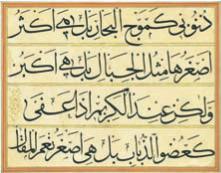 ذنوبي كموج البحار بل هي اكثر
اصغرها مثل الجبال بل هي اكبر
ولكن عند الكريم اذا عفى
كعضو الذباب بل هي اصغر نعم المقال